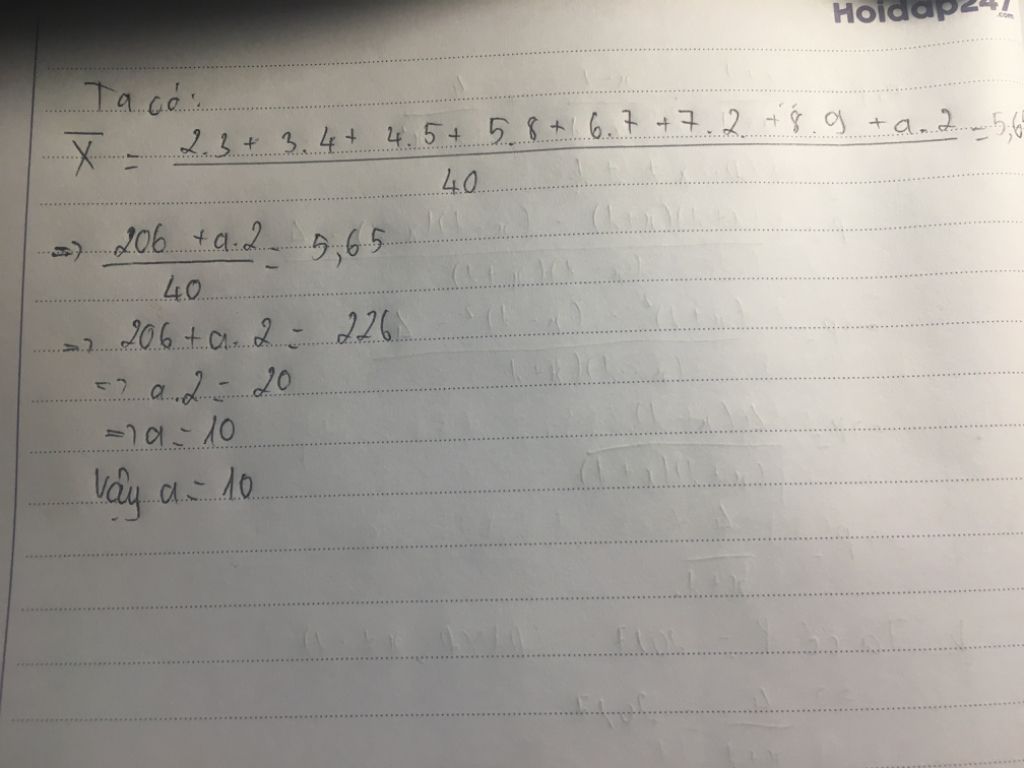 Hoidap247
.com
Ta có:
X̅ = 2.3 + 3.4 + 4.5 + 5.8 + 6.7 + 7.2 + 8.9 + a.2 = 5,65
40
=> 206 + a.2 = 5,65
40
=> 206 + a.2 = 226
=> a.2 = 20
=> a = 10
Vậy a = 10